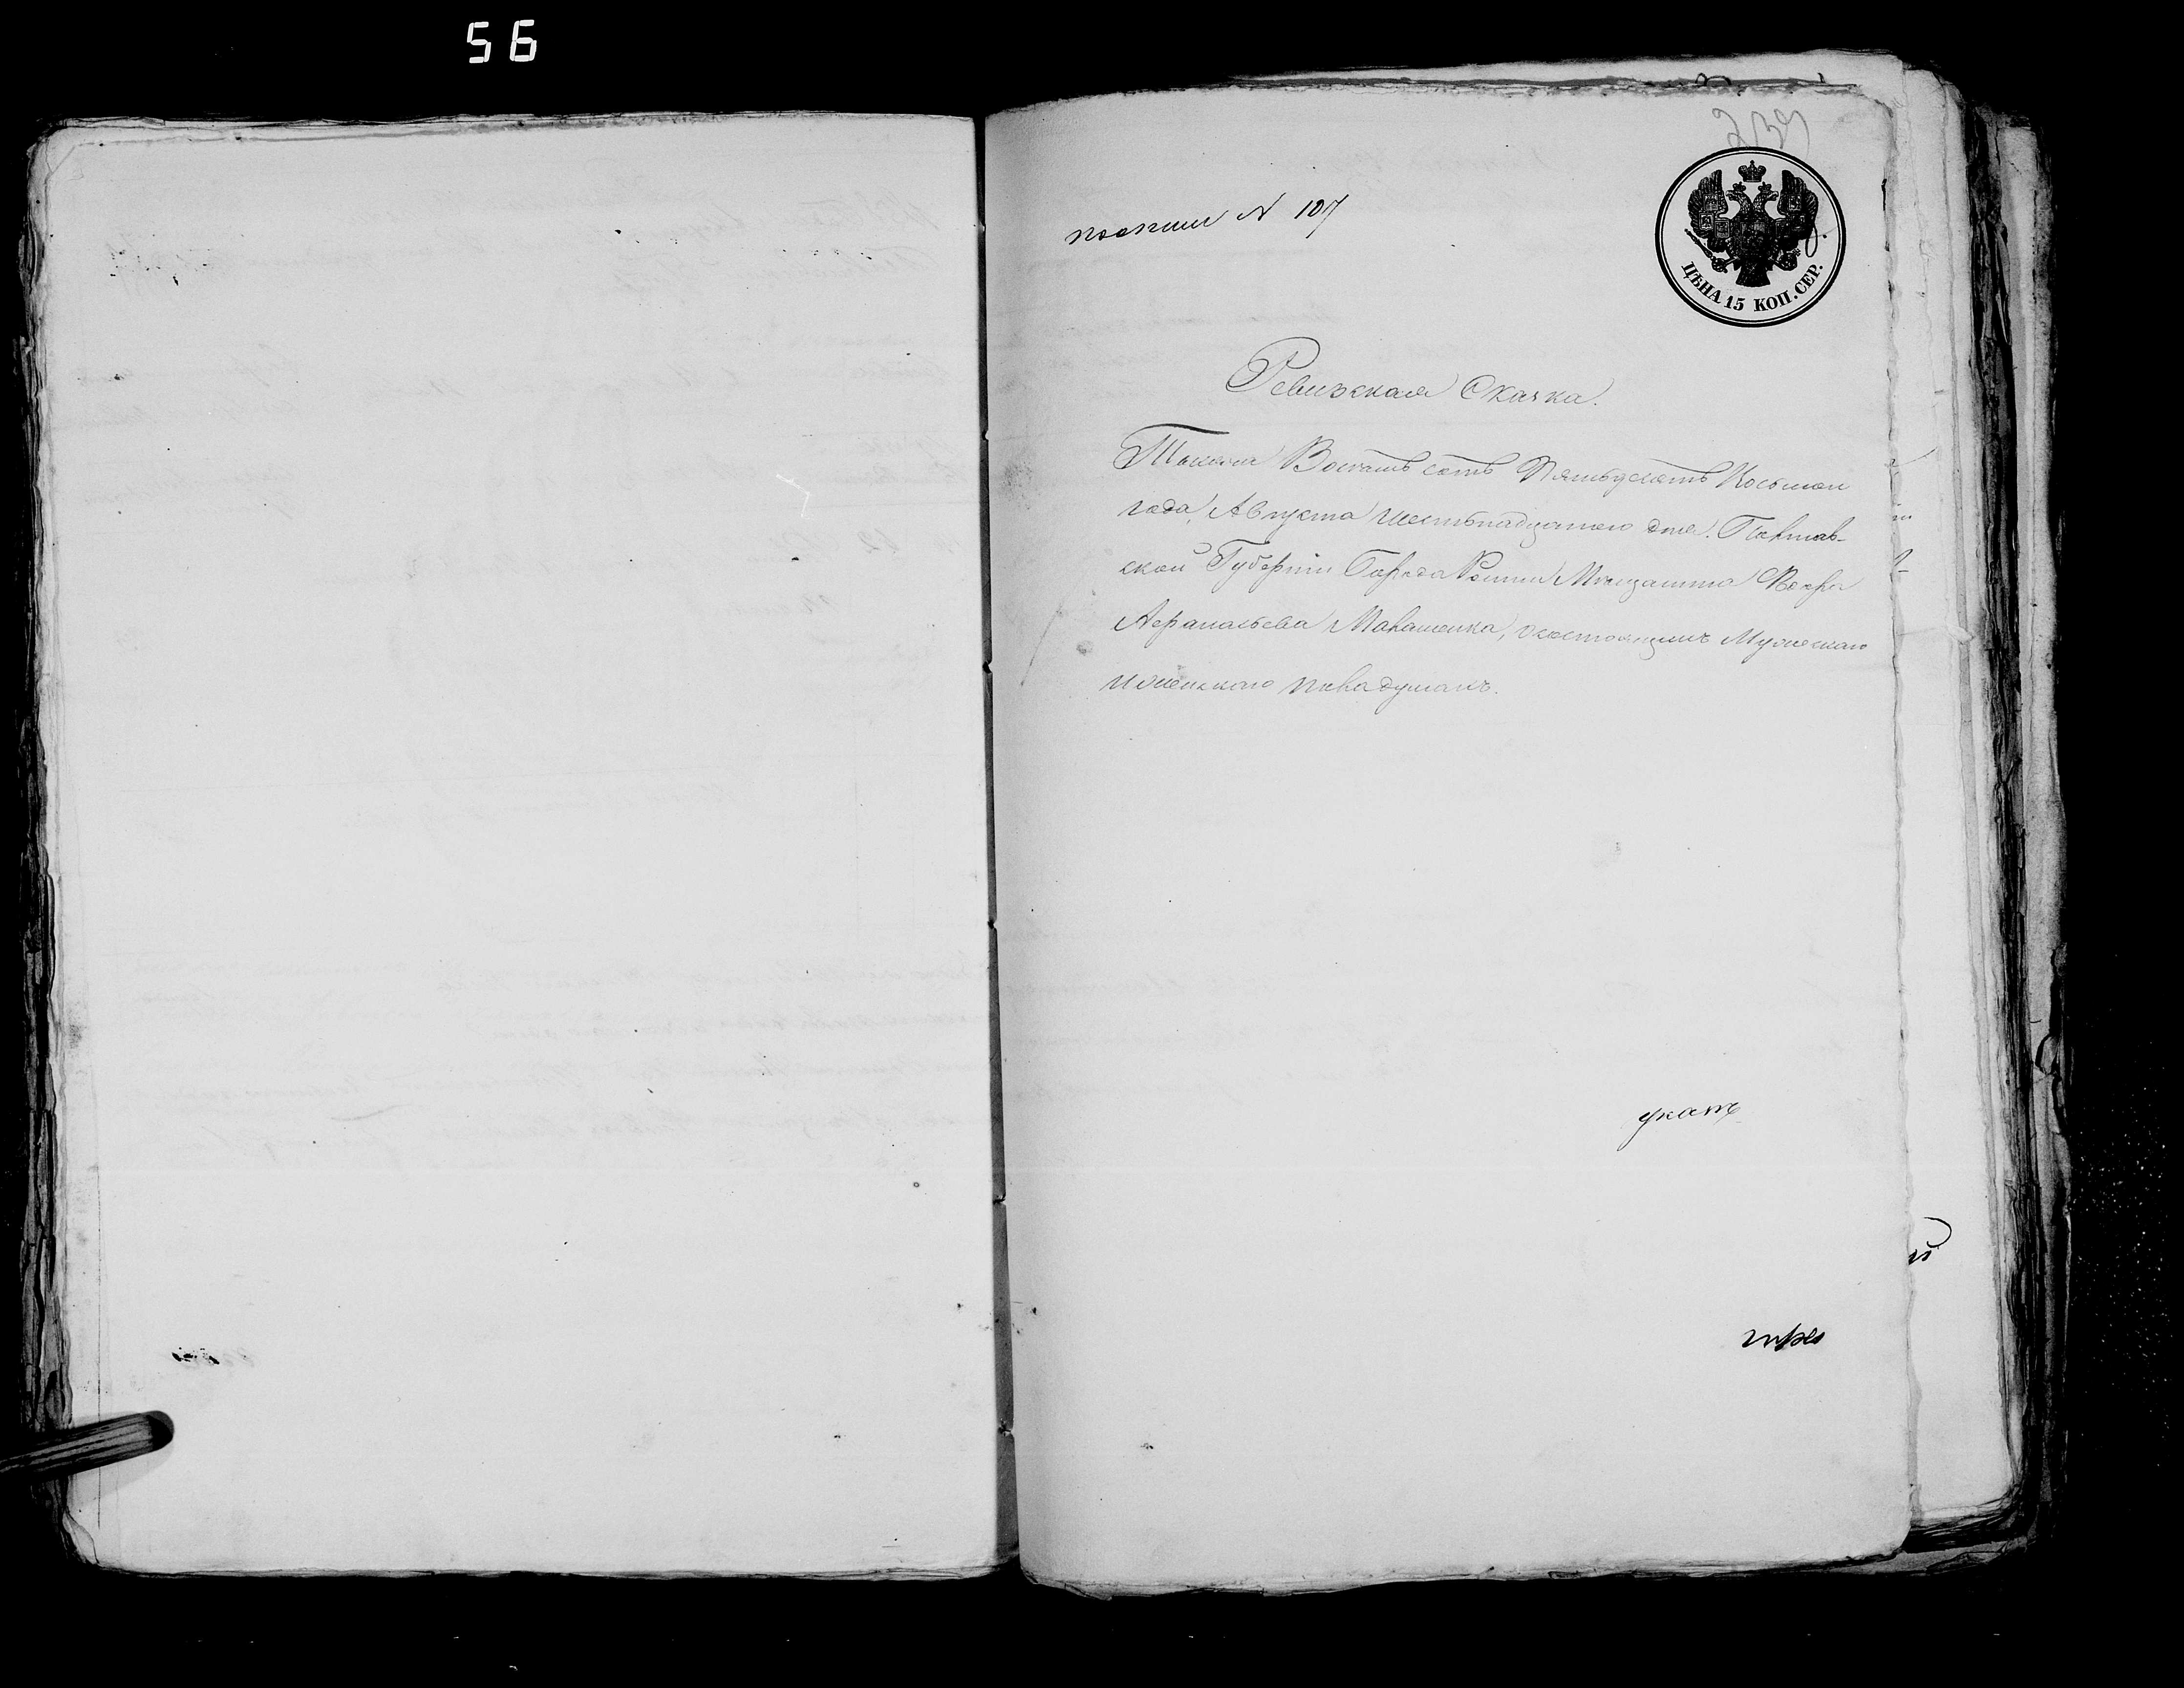 56
239
по описи N 107
ЦѢНА 15 КОП. СЕР.
Ревизская Сказка.
Тысяча Восемь сотъ Пятьдесятъ Восьмаго
года, Августа шестьнадцатого дня. Полтав-
ской Губерніи Города Ромна Мещанина
Афанасьева Малашенка, о состоящихъ Мужескаго
и женскаго пола душахъ.
укатъ